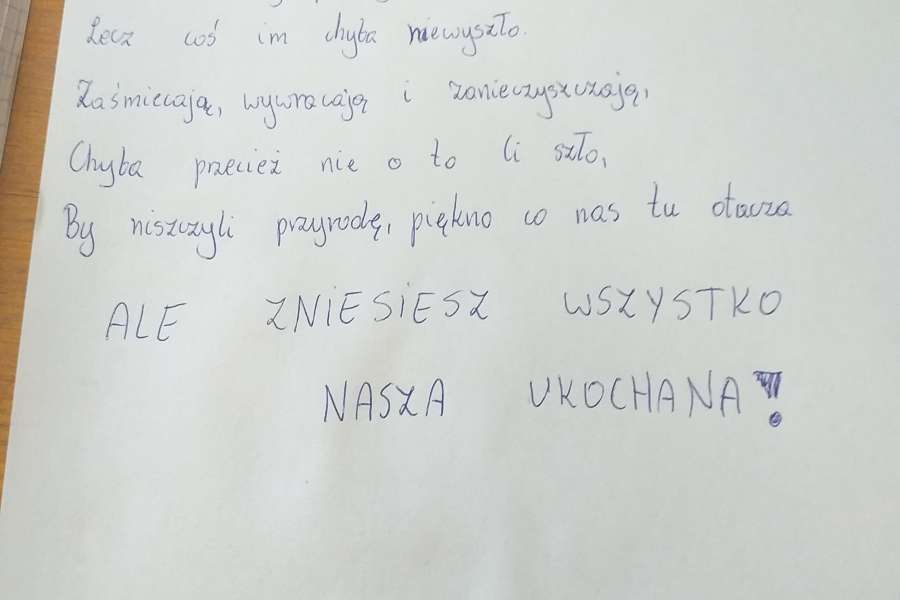 Lecz coś im chyba niewyszło.
Zaśmiecają, wywracają i zanieczyszczają,
Chyba przecież nie o to Ci szło,
By niszczyli przyrodę, piękno co nas tu otacza
ALE ZNIESIESZ WSZYSTKO
NASZA UKOCHANA!